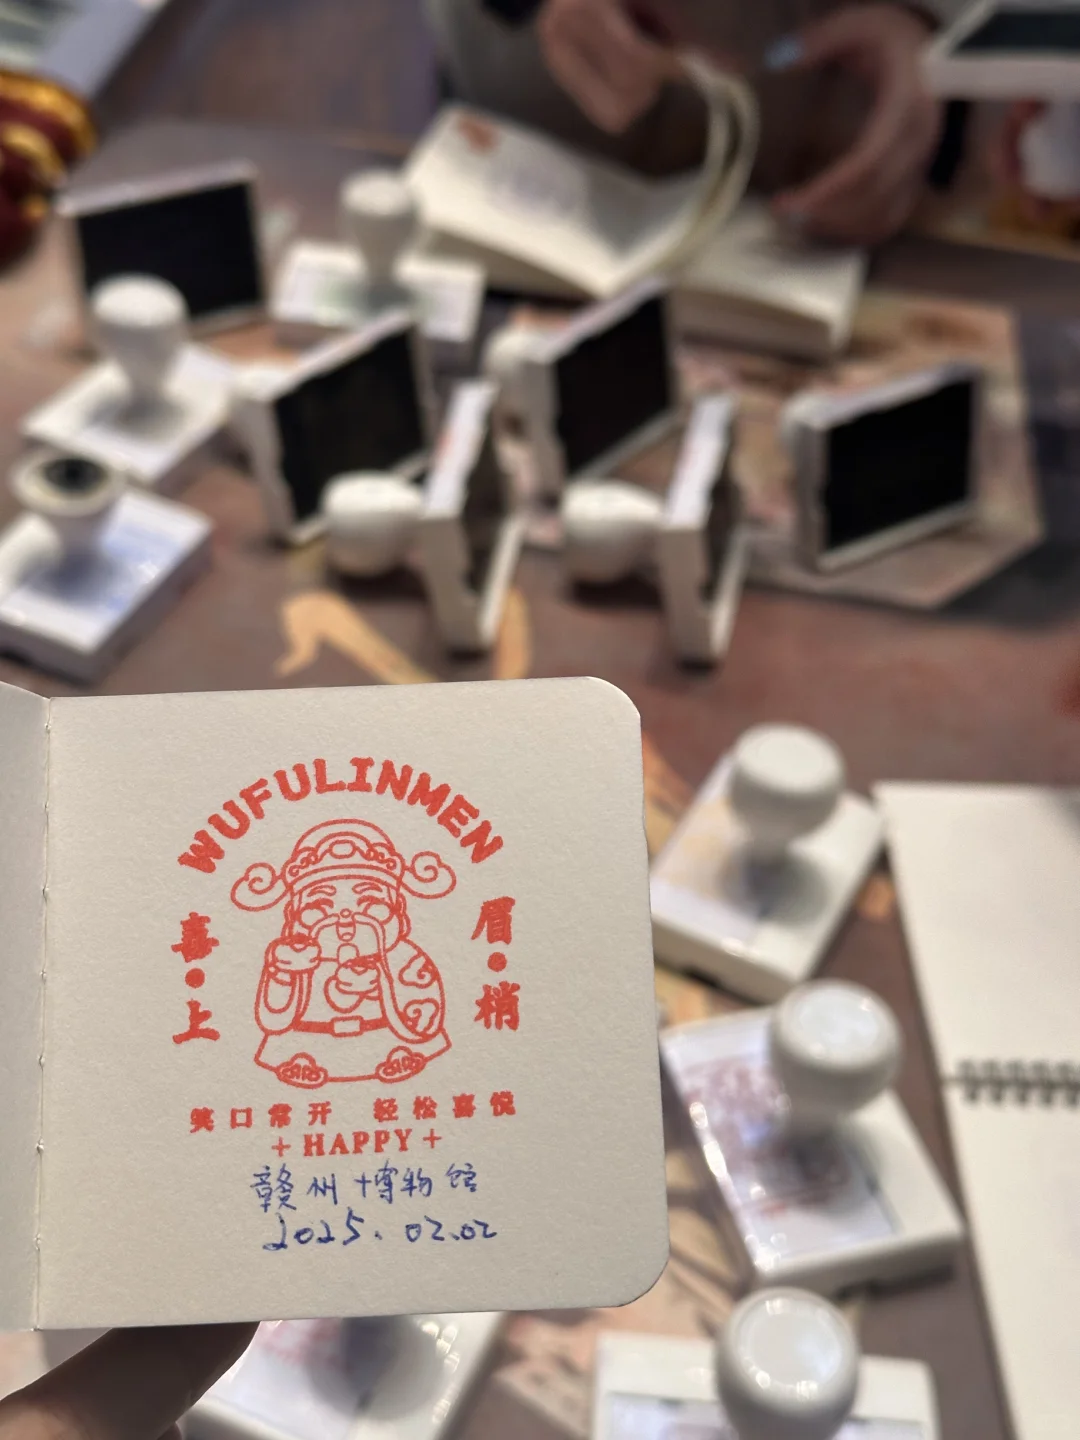 WUFULINMEN
喜·上
眉·梢
笑口常开 轻松喜悦
+HAPPY+
赣州博物馆
2025.02.02